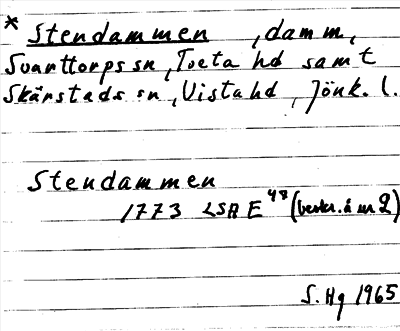 * Stendammen, damm,
Svarttorps sn, Tveta hd samt
Skärstads sn, Vista hd, Jönk. l.
Stendammen
1773 LSA E 48 (beskr. å nr 2)
S. Hg 1965